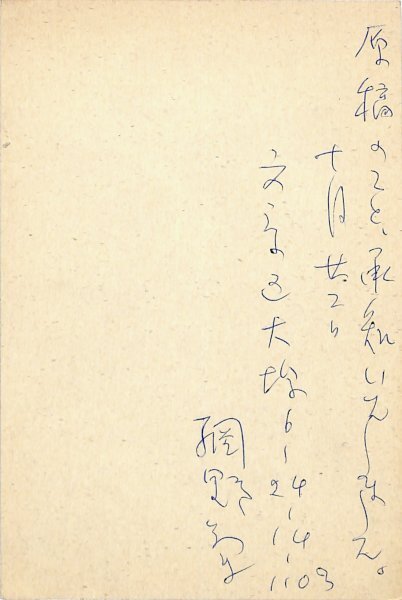 原稿のこと、承知いたしました。
十月廿二日
文京区大塚6-24-14-1103
網野菊